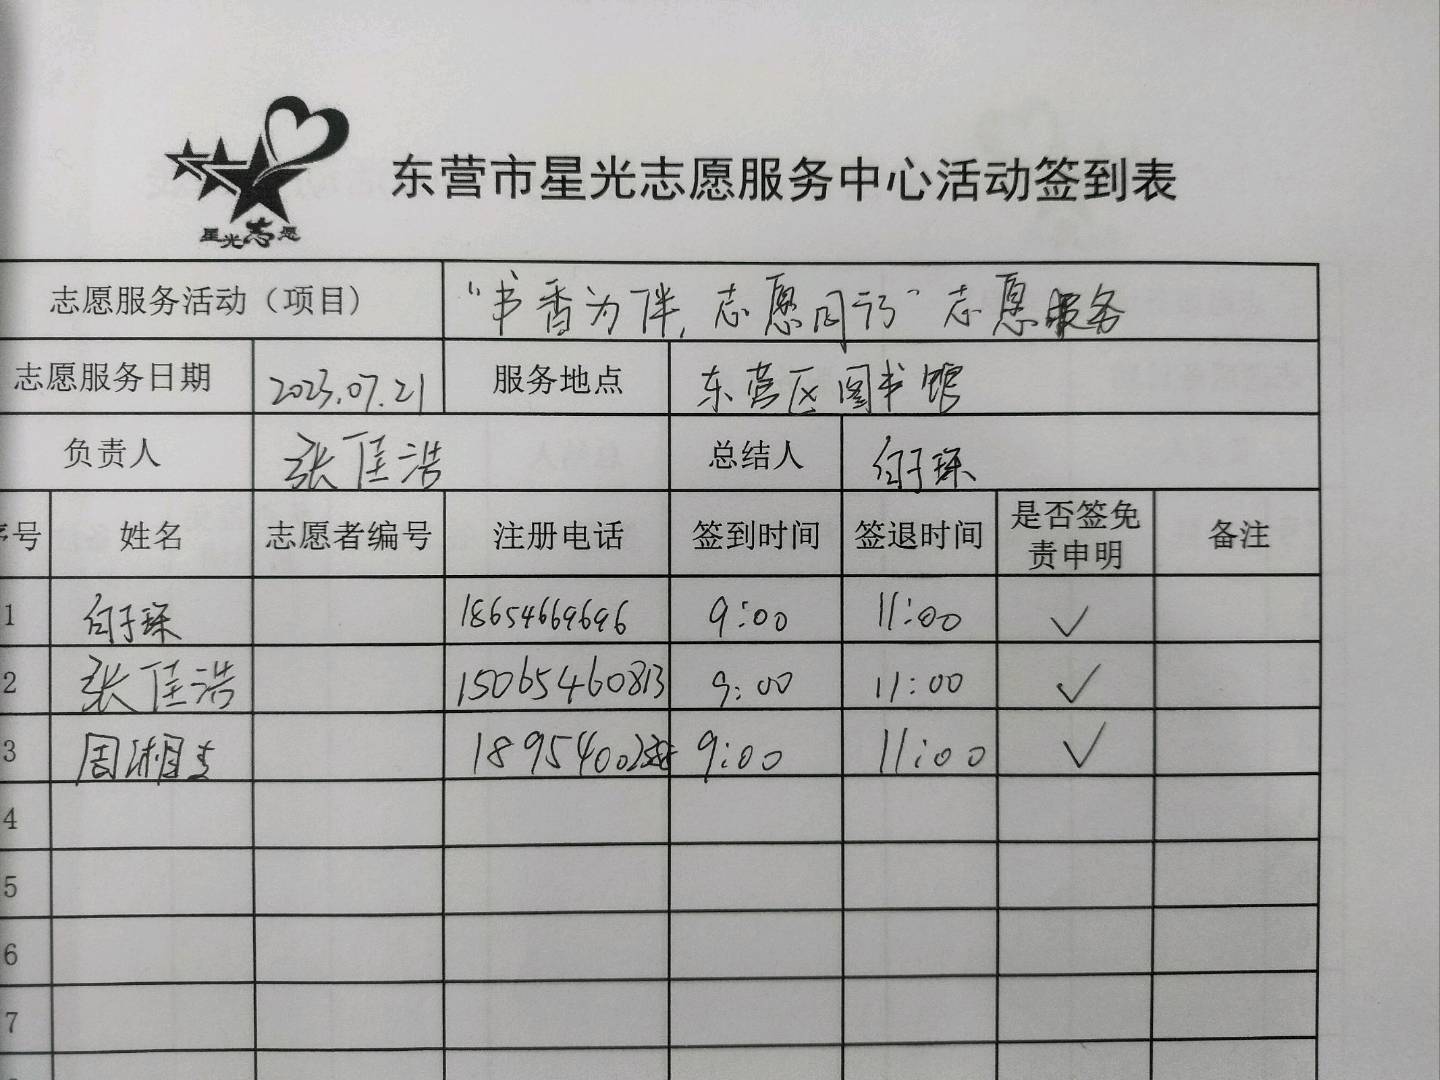 星光志愿
东营市星光志愿服务中心活动签到表
志愿服务活动（项目） “书香为伴，志愿同行”志愿服务
志愿服务日期 2023.07.21 服务地点 东营区图书馆
负责人 张佳浩 总结人 子琛
序号 姓名 志愿者编号 注册电话 签到时间 签退时间 是否签免责申明 备注
1 子琛 18654669696 9:00 11:00 ✓
2 张佳浩 15065460813 9:00 11:00 ✓
3 周湘 9:00 11:00 ✓
4
5
6
7